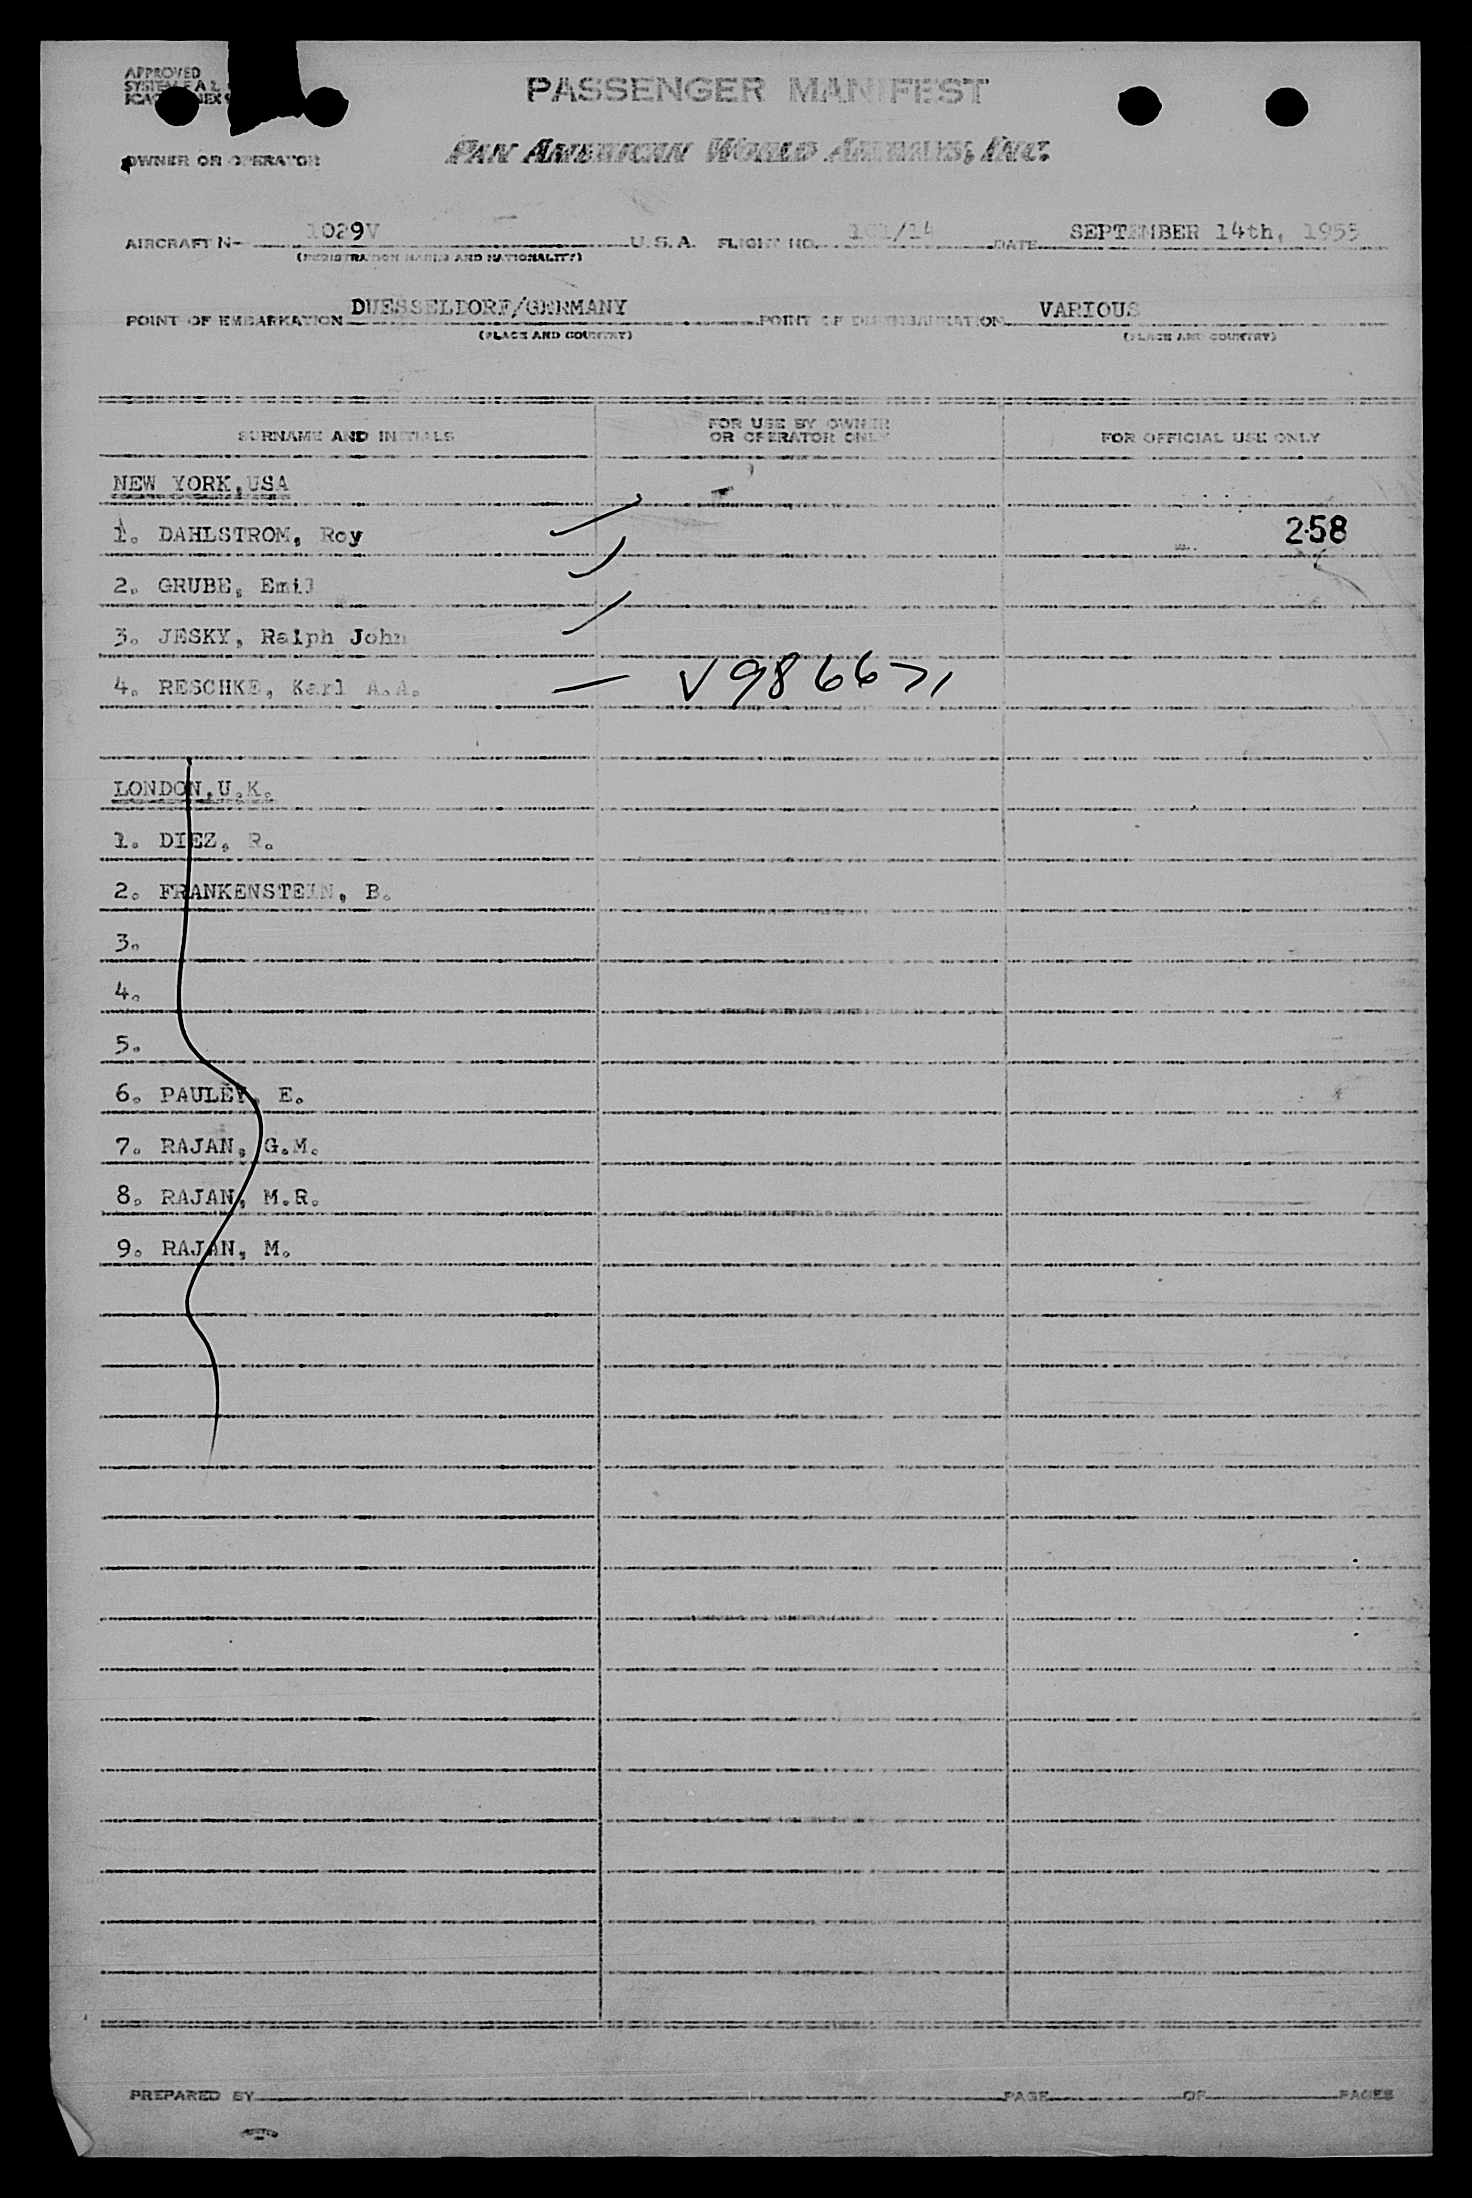 APPROVED
PASSENGER MANIFEST
OWNER OR OPERATOR
PAN AMERICAN WORLD AIRWAYS, INC.
AIRCRAFT N- 1029V U. S. A. FLIGHT NO. 101/14 DATE SEPTEMBER 14th, 1955
(REGISTRATION MARKS AND NATIONALITY)
POINT OF EMBARKATION DUESSELDORF/GERMANY POINT OF DISEMBARKATION VARIOUS
(PLACE AND COUNTRY) (PLACE AND COUNTRY)
SURNAME AND INITIALS
FOR USE BY OWNER
OR OPERATOR ONLY
FOR OFFICIAL USE ONLY
NEW YORK,USA
1. DAHLSTROM, Roy 258
2. GRUBE, Emil
3. JESKY, Ralph John
4. RESCHKE, Karl A.A. — V986671
LONDON,U.K.
1. DIEZ, R.
2. FRANKENSTEIN, B.
3.
4.
5.
6. PAULEY, E.
7. RAJAN, G.M.
8. RAJAN, M.R.
9. RAJAN, M.
PREPARED BY PAGE OF PAGES